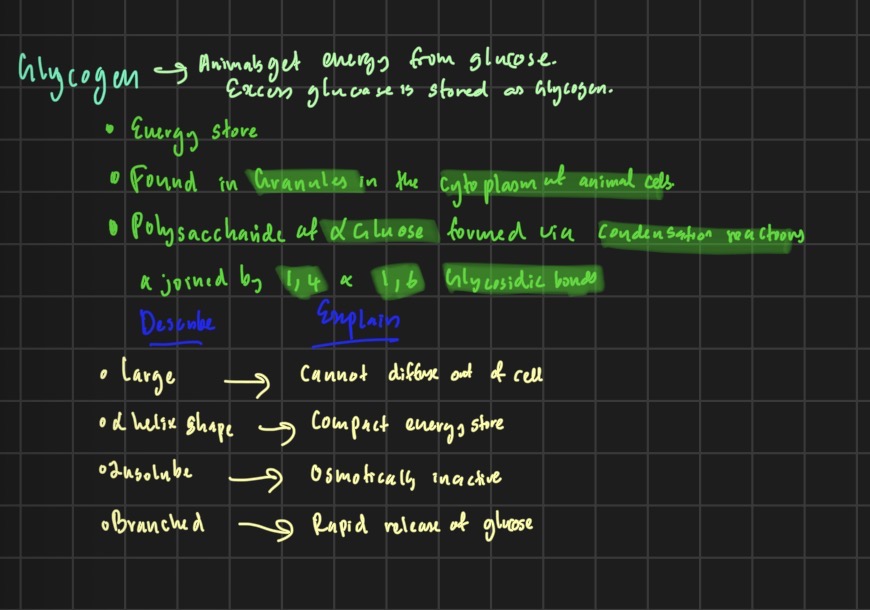 Glycogen → Animals get energy from glucose.
Excess glucose is stored as Glycogen.
• Energy store
• Found in Granules in the Cytoplasm of animal cells
• Polysaccharide of α Glucose formed via Condensation reactions
& joined by 1,4 & 1,6 Glycosidic bonds
Describe Explain
• Large → Cannot diffuse out of cell
• α helix shape → Compact energy store
• Insoluble → Osmotically inactive
• Branched → Rapid release of glucose